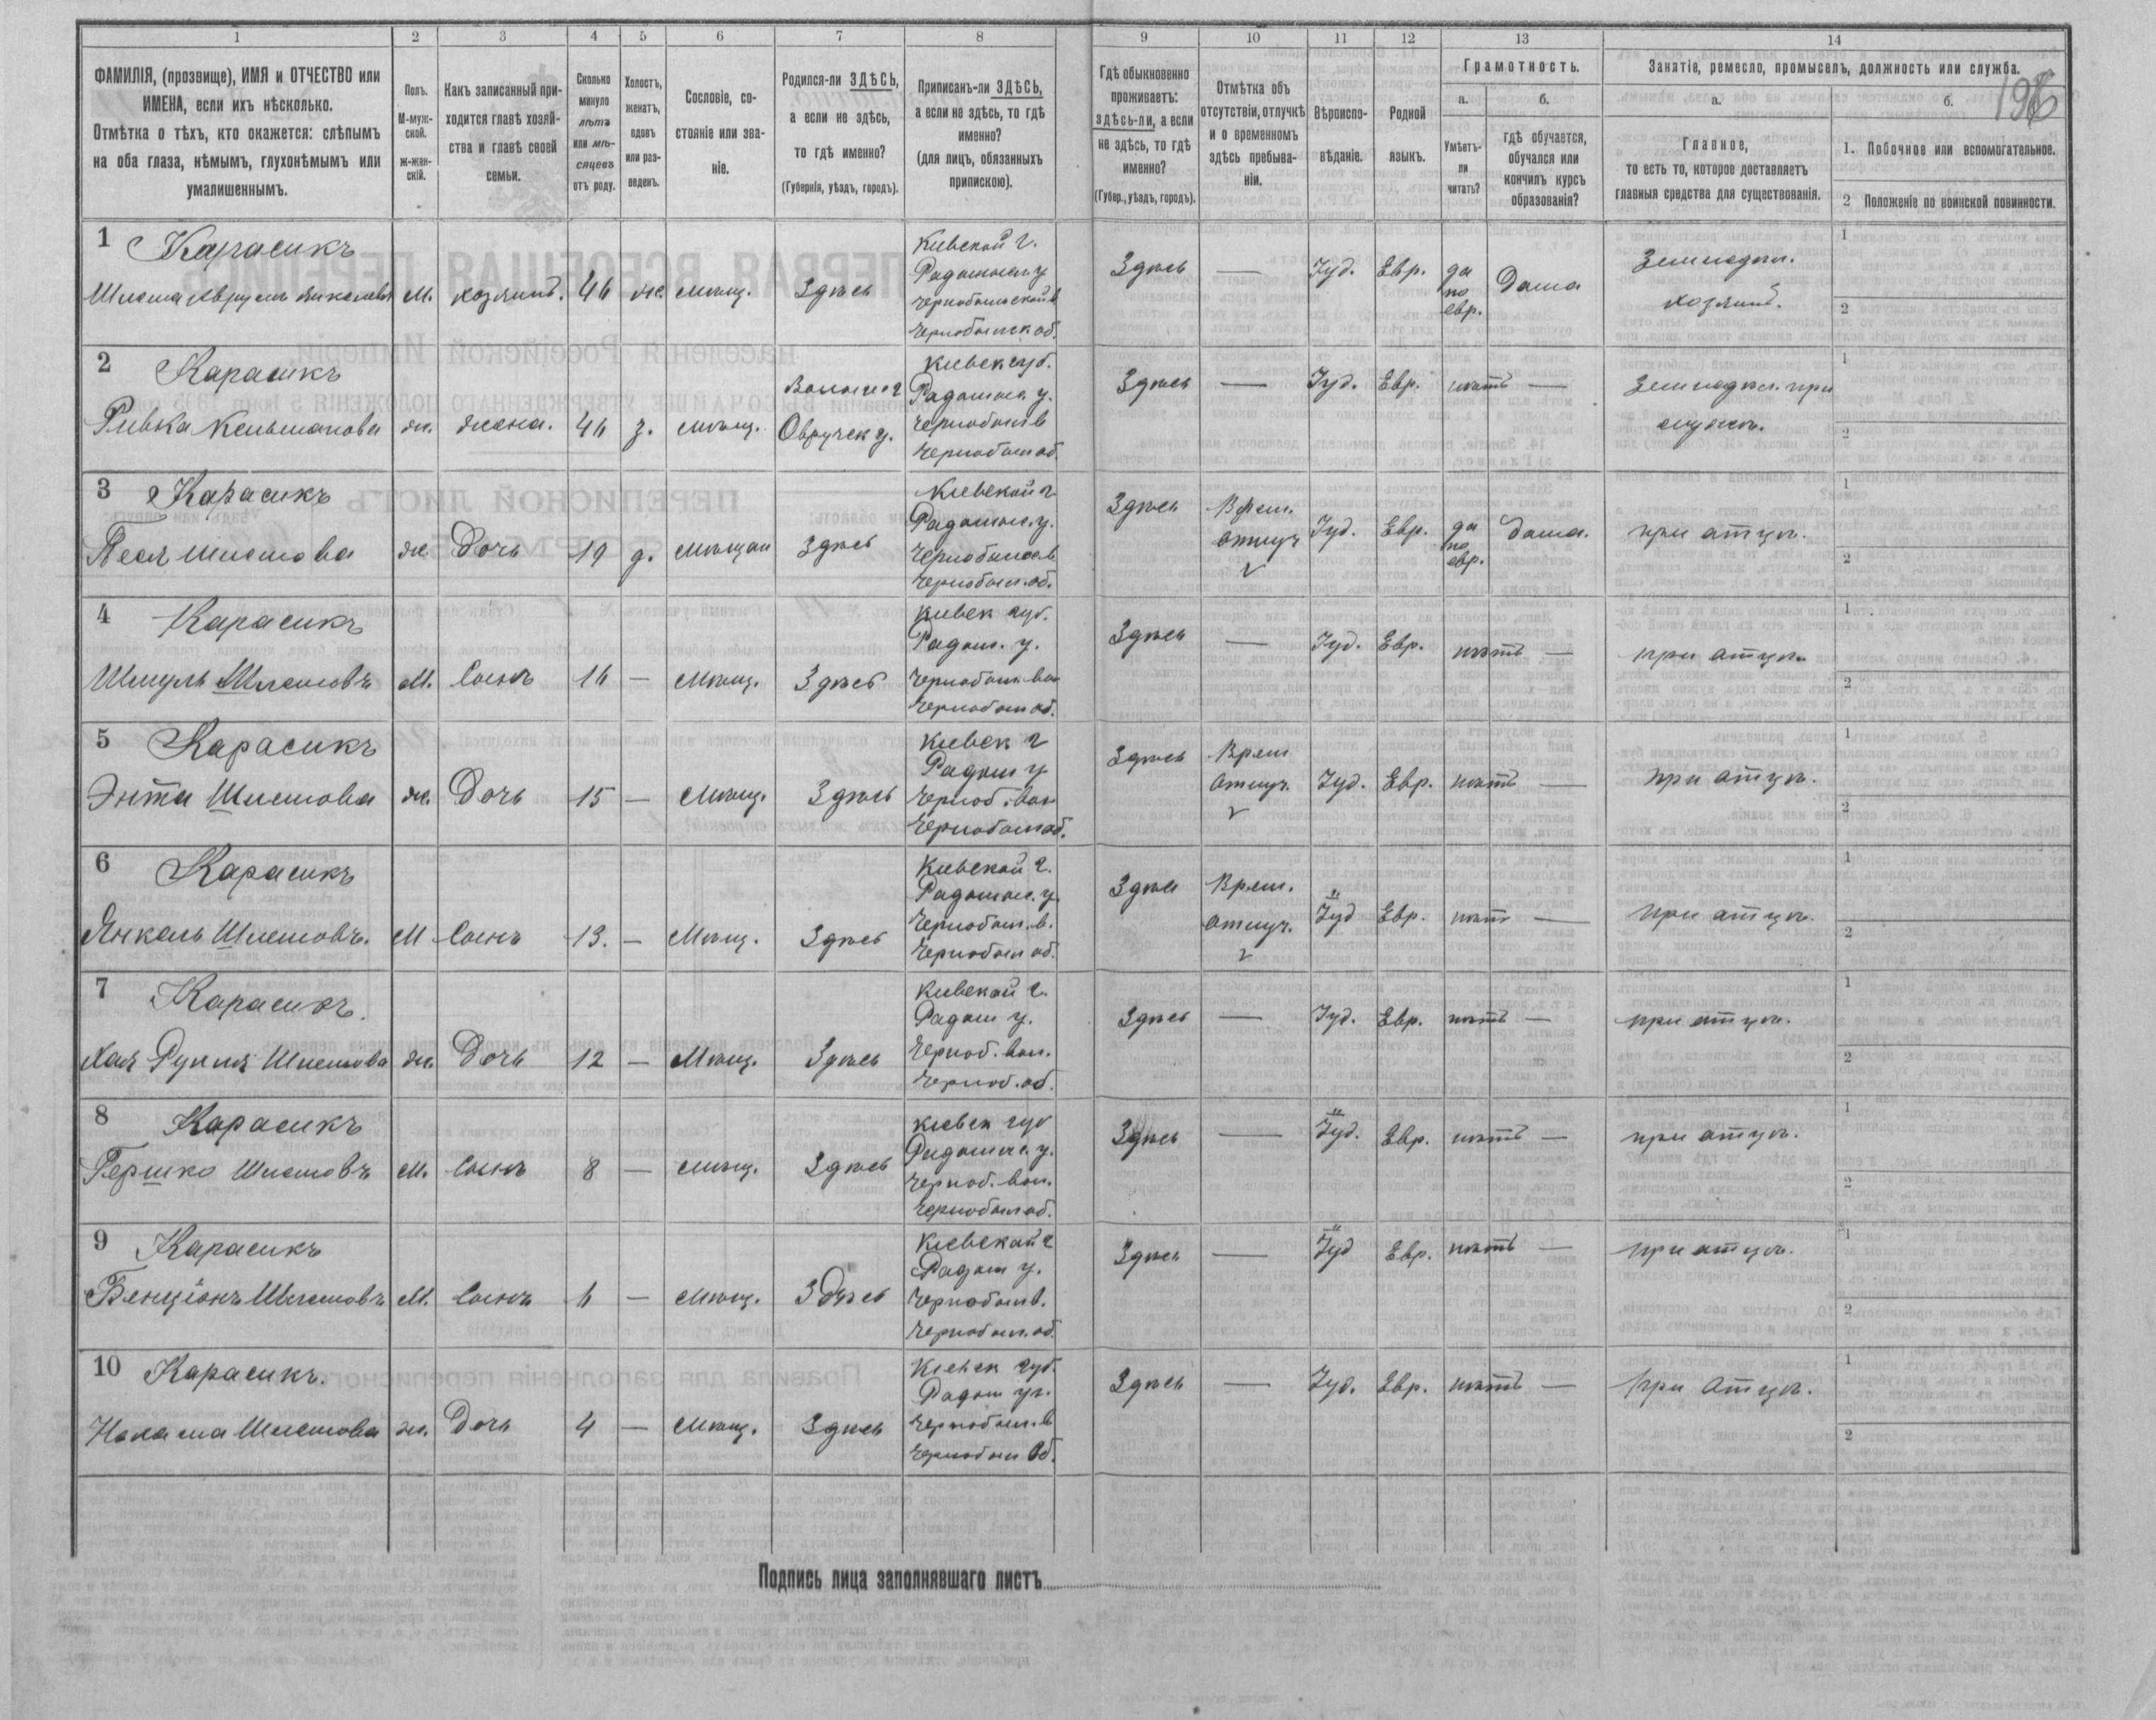 1 2 3 4 5 6 7 8 9 10 11 12 13 14
ФАМИЛІЯ, (прозвище), ИМЯ и ОТЧЕСТВО или
ИМЕНА, если ихъ нѣсколько.
Отмѣтка о тѣхъ, кто окажется: слѣпымъ
на оба глаза, нѣмымъ, глухонѣмымъ или
умалишеннымъ.
Полъ.
М-муж-
ской.
ж-жен-
скій.
Какъ записанный при-
ходится главѣ хозяй-
ства и главѣ своей
семьи.
Сколько
минуло
лѣтъ
или мѣ-
сяцевъ
отъ роду.
Холостъ,
женатъ,
вдовъ
или раз-
веденъ.
Сословіе, со-
стояніе или зва-
ніе.
Родился-ли ЗДѢСЬ,
а если не здѣсь,
то гдѣ именно?
(Губернія, уѣздъ, городъ).
Приписанъ-ли ЗДѢСЬ,
а если не здѣсь, то гдѣ
именно?
(для лицъ, обязанныхъ
припискою).
Гдѣ обыкновенно
проживаетъ:
здѣсь-ли, а если
не здѣсь, то гдѣ
именно?
(Губер., уѣздъ, городъ).
Отмѣтка объ
отсутствіи, отлучкѣ
и о временномъ
здѣсь пребыва-
ніи.
Вѣроиспо-
вѣданіе.
Родной
языкъ.
Грамотность.
а.
Умѣетъ-
ли
читать?
б.
гдѣ обучается,
обучался или
кончилъ курсъ
образованія?
Занятіе, ремесло, промыселъ, должность или служба.
а.
Главное,
то есть то, которое доставляетъ
главныя средства для существованія.
б.
1. Побочное или вспомогательное.
2 Положеніе по воинской повинности.
1 Карасикъ
Шлема Аврумъ м. хозяинъ. 46 ж. мѣщ. Здѣсь
Кіевской г.
Радомысл. у
Чернобыльской в
Чернобыльск. об.
Здѣсь — Іуд. Евр. да
по
евр. Дома
Земледѣл.
хозяинъ.
1
2
2 Карасикъ
Ривка Кельмановa ж. жена. 46 з. мѣщ.
Волынс г
Овручск у.
Кіевск губ.
Радомыс. у.
Чернобыл в
Чернобыл об.
Здѣсь — Іуд. Евр. нѣтъ —
Земледѣл. при
мужѣ.
1
2
3 Карасикъ
Песя Шлемова ж. Дочь 19 д. мѣщан Здѣсь
Кіевской г
Радомыс. у.
Чернобыльс в
Чернобыл. об.
Здѣсь Врем.
отлуч
v
Іуд. Евр. да
по
евр. Дома. при отцѣ.
1
2
4 Карасикъ
Шмуль Шлемовъ м. Сынъ 16 — мѣщ. Здѣсь
Кіевск губ.
Радом. у.
Чернобыл. вол
Чернобыл об.
Здѣсь — Іуд. Евр. нѣтъ — при отцѣ.
1
2
5 Карасикъ
Энта Шлемова ж. Дочь 15 — мѣщ. Здѣсь
Кіевск г
Радом у
Черноб. вол
Чернобыл об.
Здѣсь Врем
отлуч.
v
Іуд. Евр. нѣтъ — при отцѣ.
1
2
6 Карасикъ
Янкель Шлемовъ. М Сынъ 13. — мѣщ. Здѣсь
Кіевской г.
Радомыс. у.
Чернобыл. в.
Чернобыл об.
Здѣсь Врем.
отлуч.
v
Іуд Евр. нѣтъ — при отцѣ.
1
2
7 Карасикъ.
Хая Рухля Шлемова ж. Дочь 12 — Мѣщ. Здѣсь
Кіевской г.
Радом у.
Черноб. вол.
Черноб. об.
Здѣсь — Іуд. Евр. нѣтъ — при отцѣ.
1
2
8 Карасикъ
Гершко Шлемовъ м. Сынъ 8 — мѣщ. Здѣсь
Кіевск губ
Радомыс. у.
Черноб. вол.
Чернобыл об.
Здѣсь — Іуд. Евр. нѣтъ — при отцѣ.
1
2
9 Карасикъ
Бенціонъ Шлемовъ м. Сынъ 6 — мѣщ. Здѣсь
Кіевской г
Радом у.
Чернобыл в.
Чернобыл. об.
Здѣсь — Іуд Евр. нѣтъ — при отцѣ.
1
2
10 Карасикъ.
Нехама Шлемова ж. Дочь 4 — мѣщ. Здѣсь
Кіевск губ.
Радом у.
Чернобыл. в
Чернобыл об.
Здѣсь — Іуд. Евр. нѣтъ — при отцѣ.
1
2
Подпись лица заполнявшаго листъ